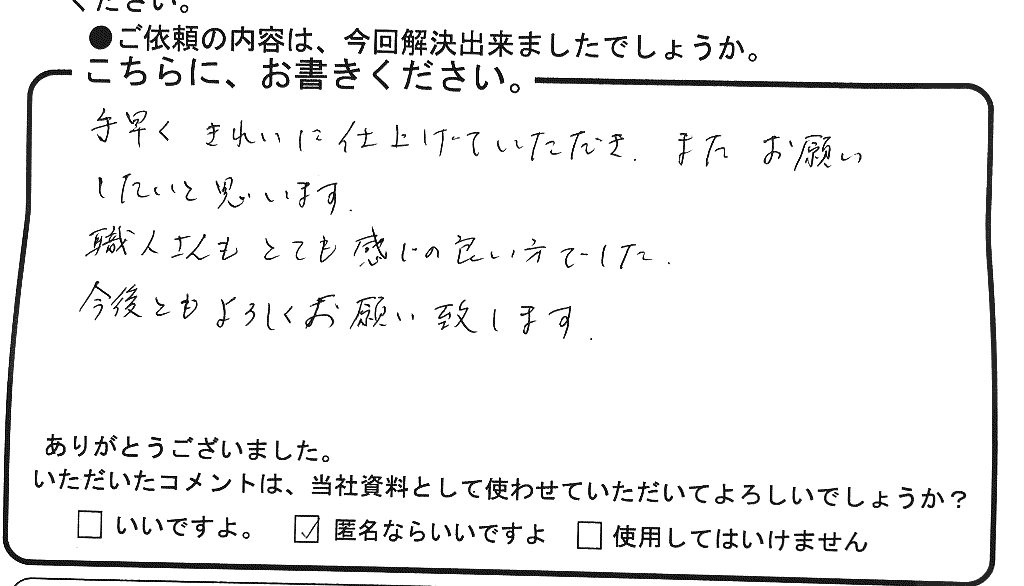 ください。
●ご依頼の内容は、今回解決出来ましたでしょうか。
こちらに、お書きください。
手早く きれいに仕上げていただき. また お願い
したいと思います.
職人さんも とても感じの良い方でした.
今後ともよろしくお願い致します.
ありがとうございました。
いただいたコメントは、当社資料として使わせていただいてよろしいでしょうか?
□ いいですよ。 ☑ 匿名ならいいですよ □ 使用してはいけません